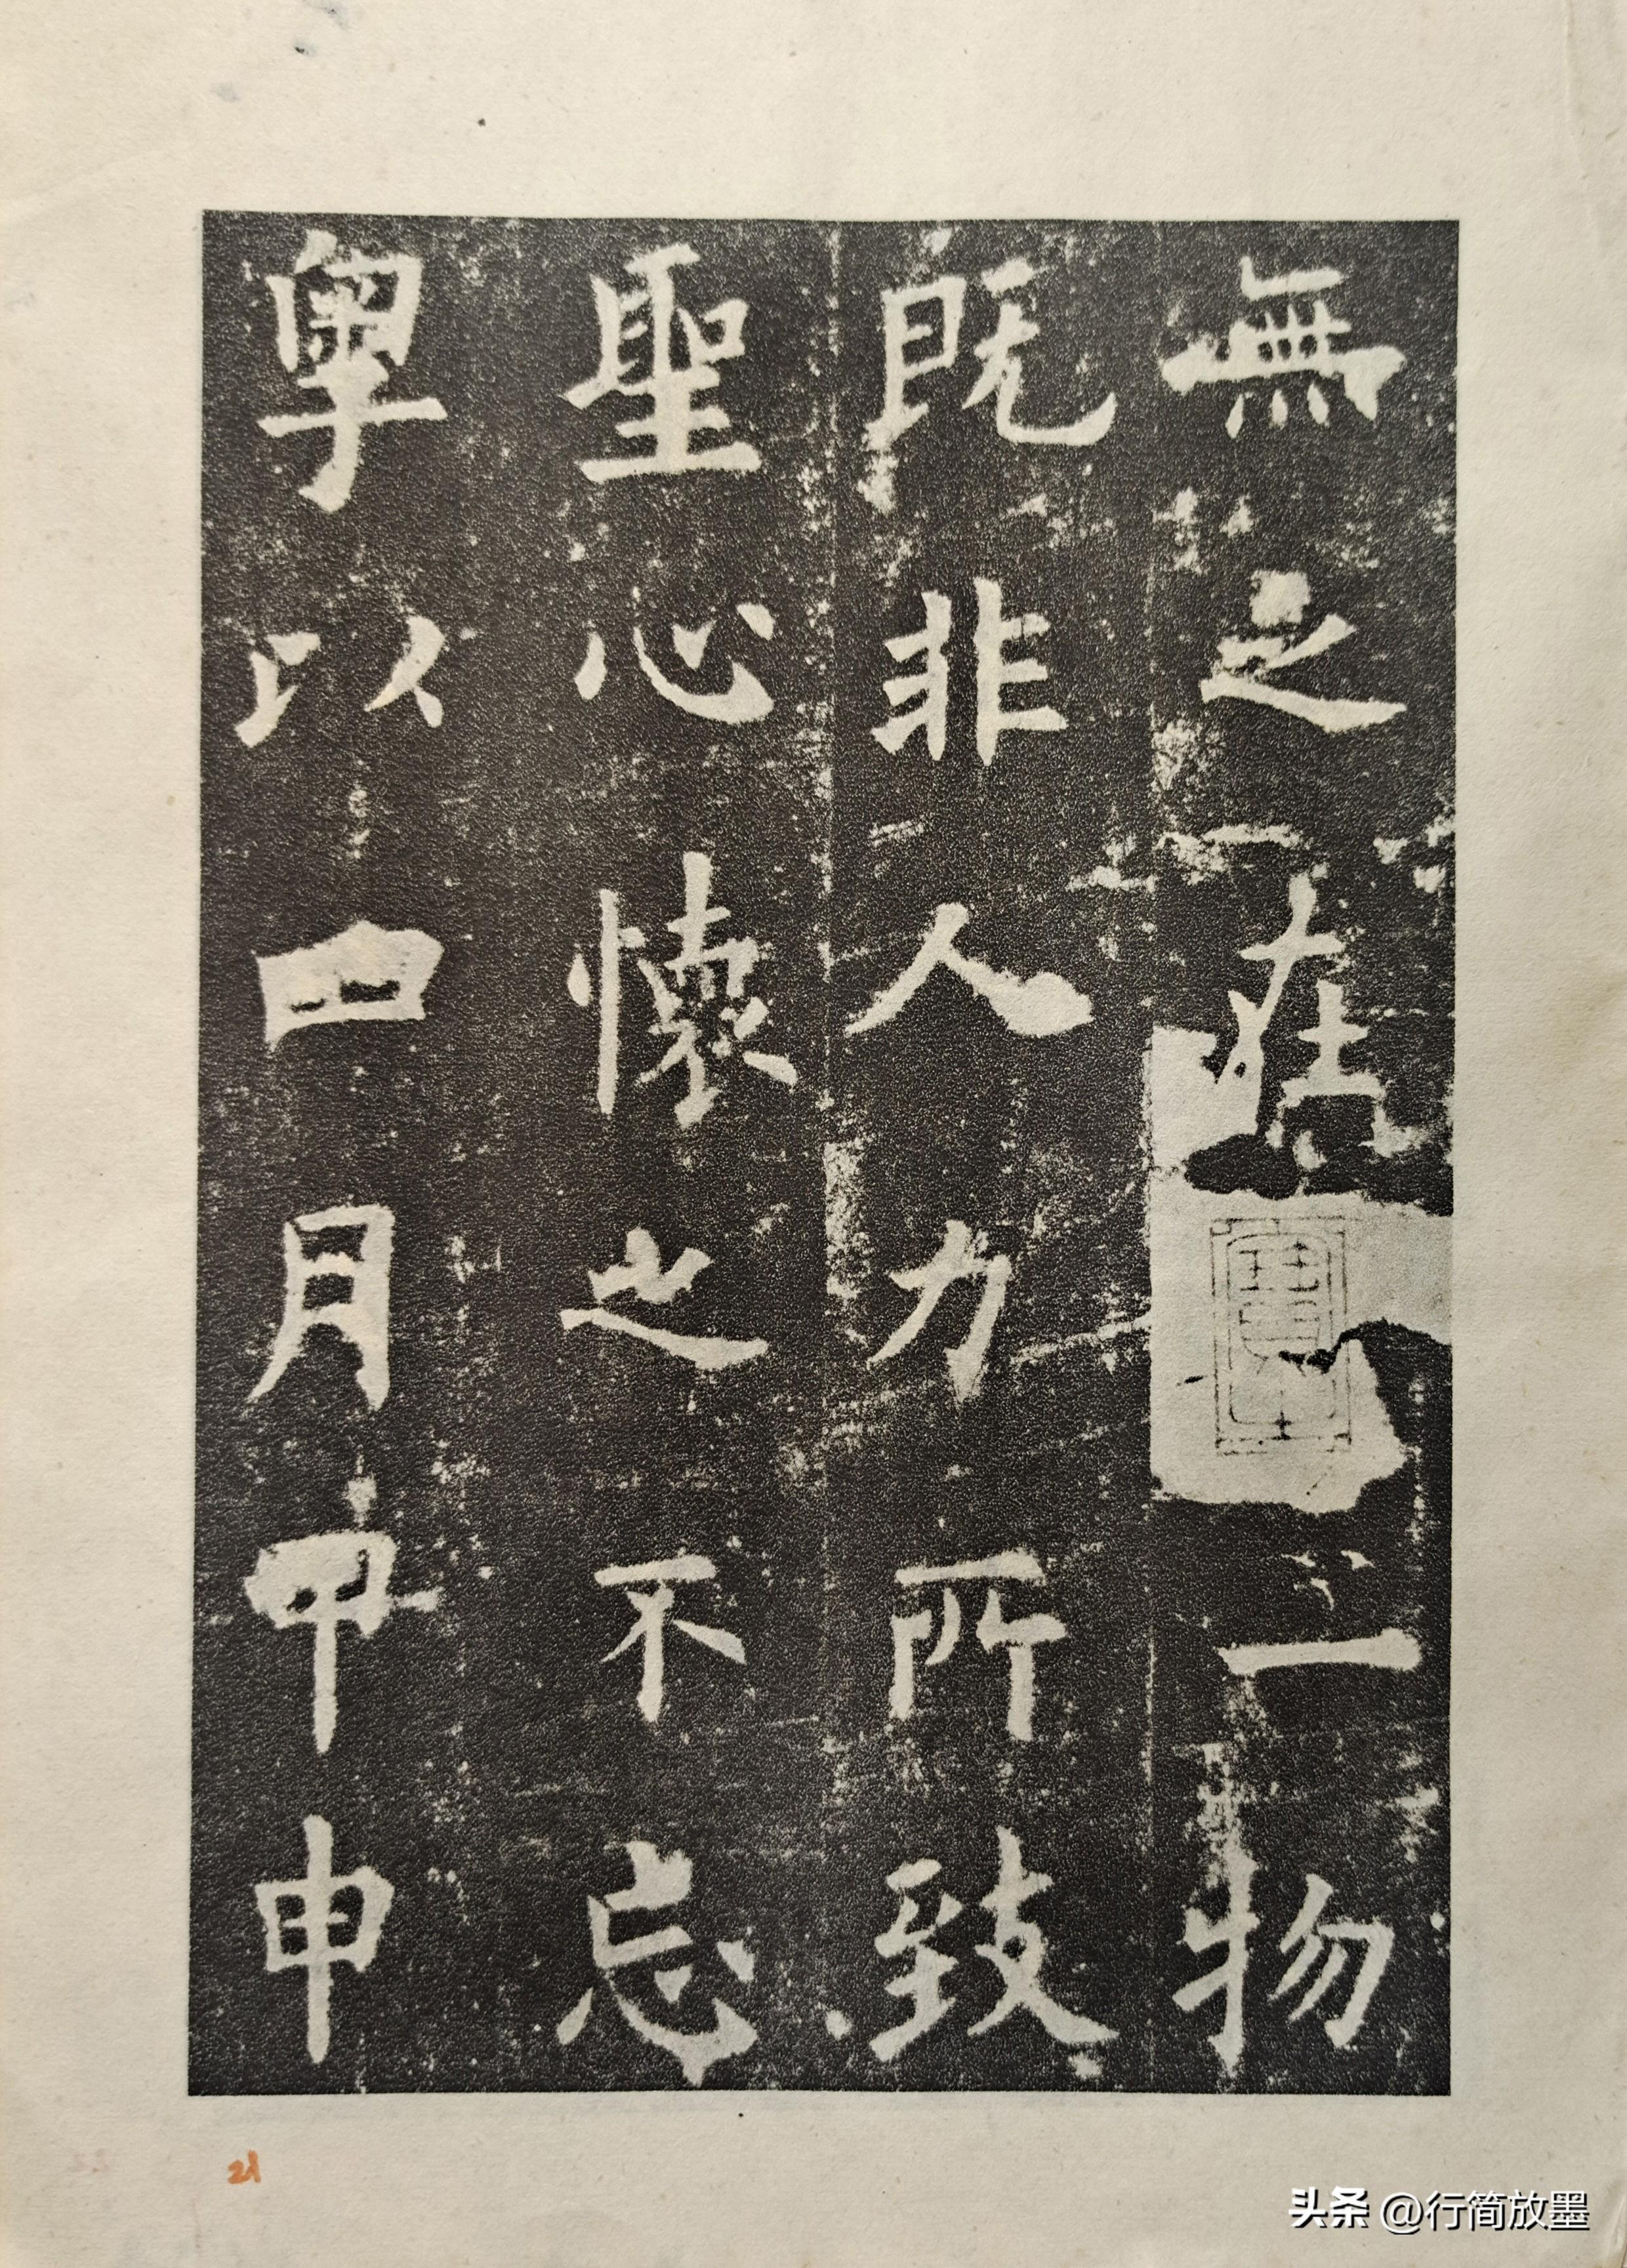 無之在一物
既非人力所致
聖心懷之不忘
粤以四月甲申
21
头条 @行简放墨